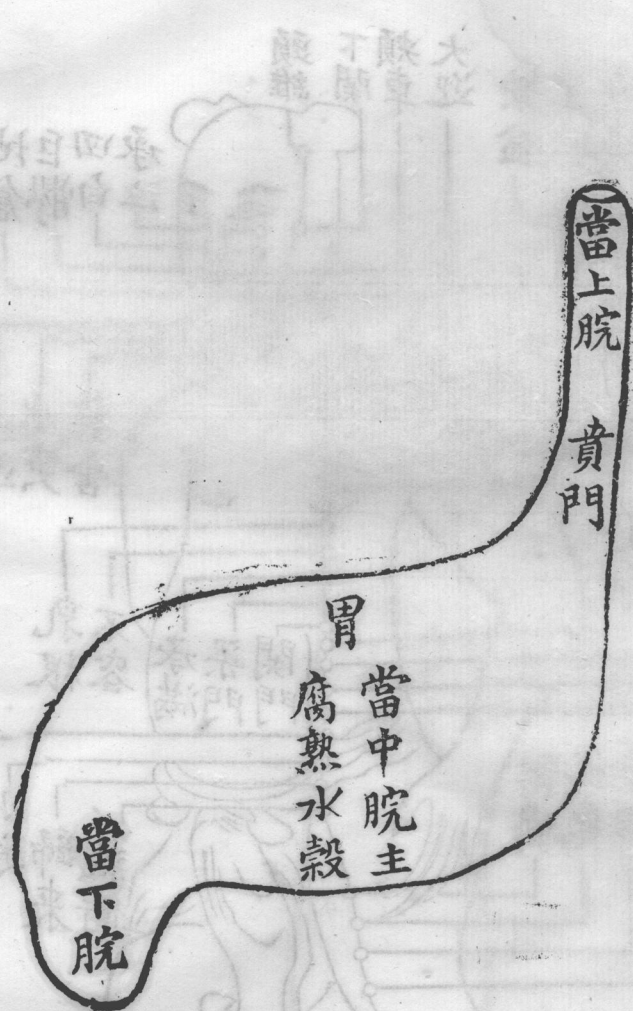 當上脘
賁門
胃
當中脘主
腐熟水穀
當下脘